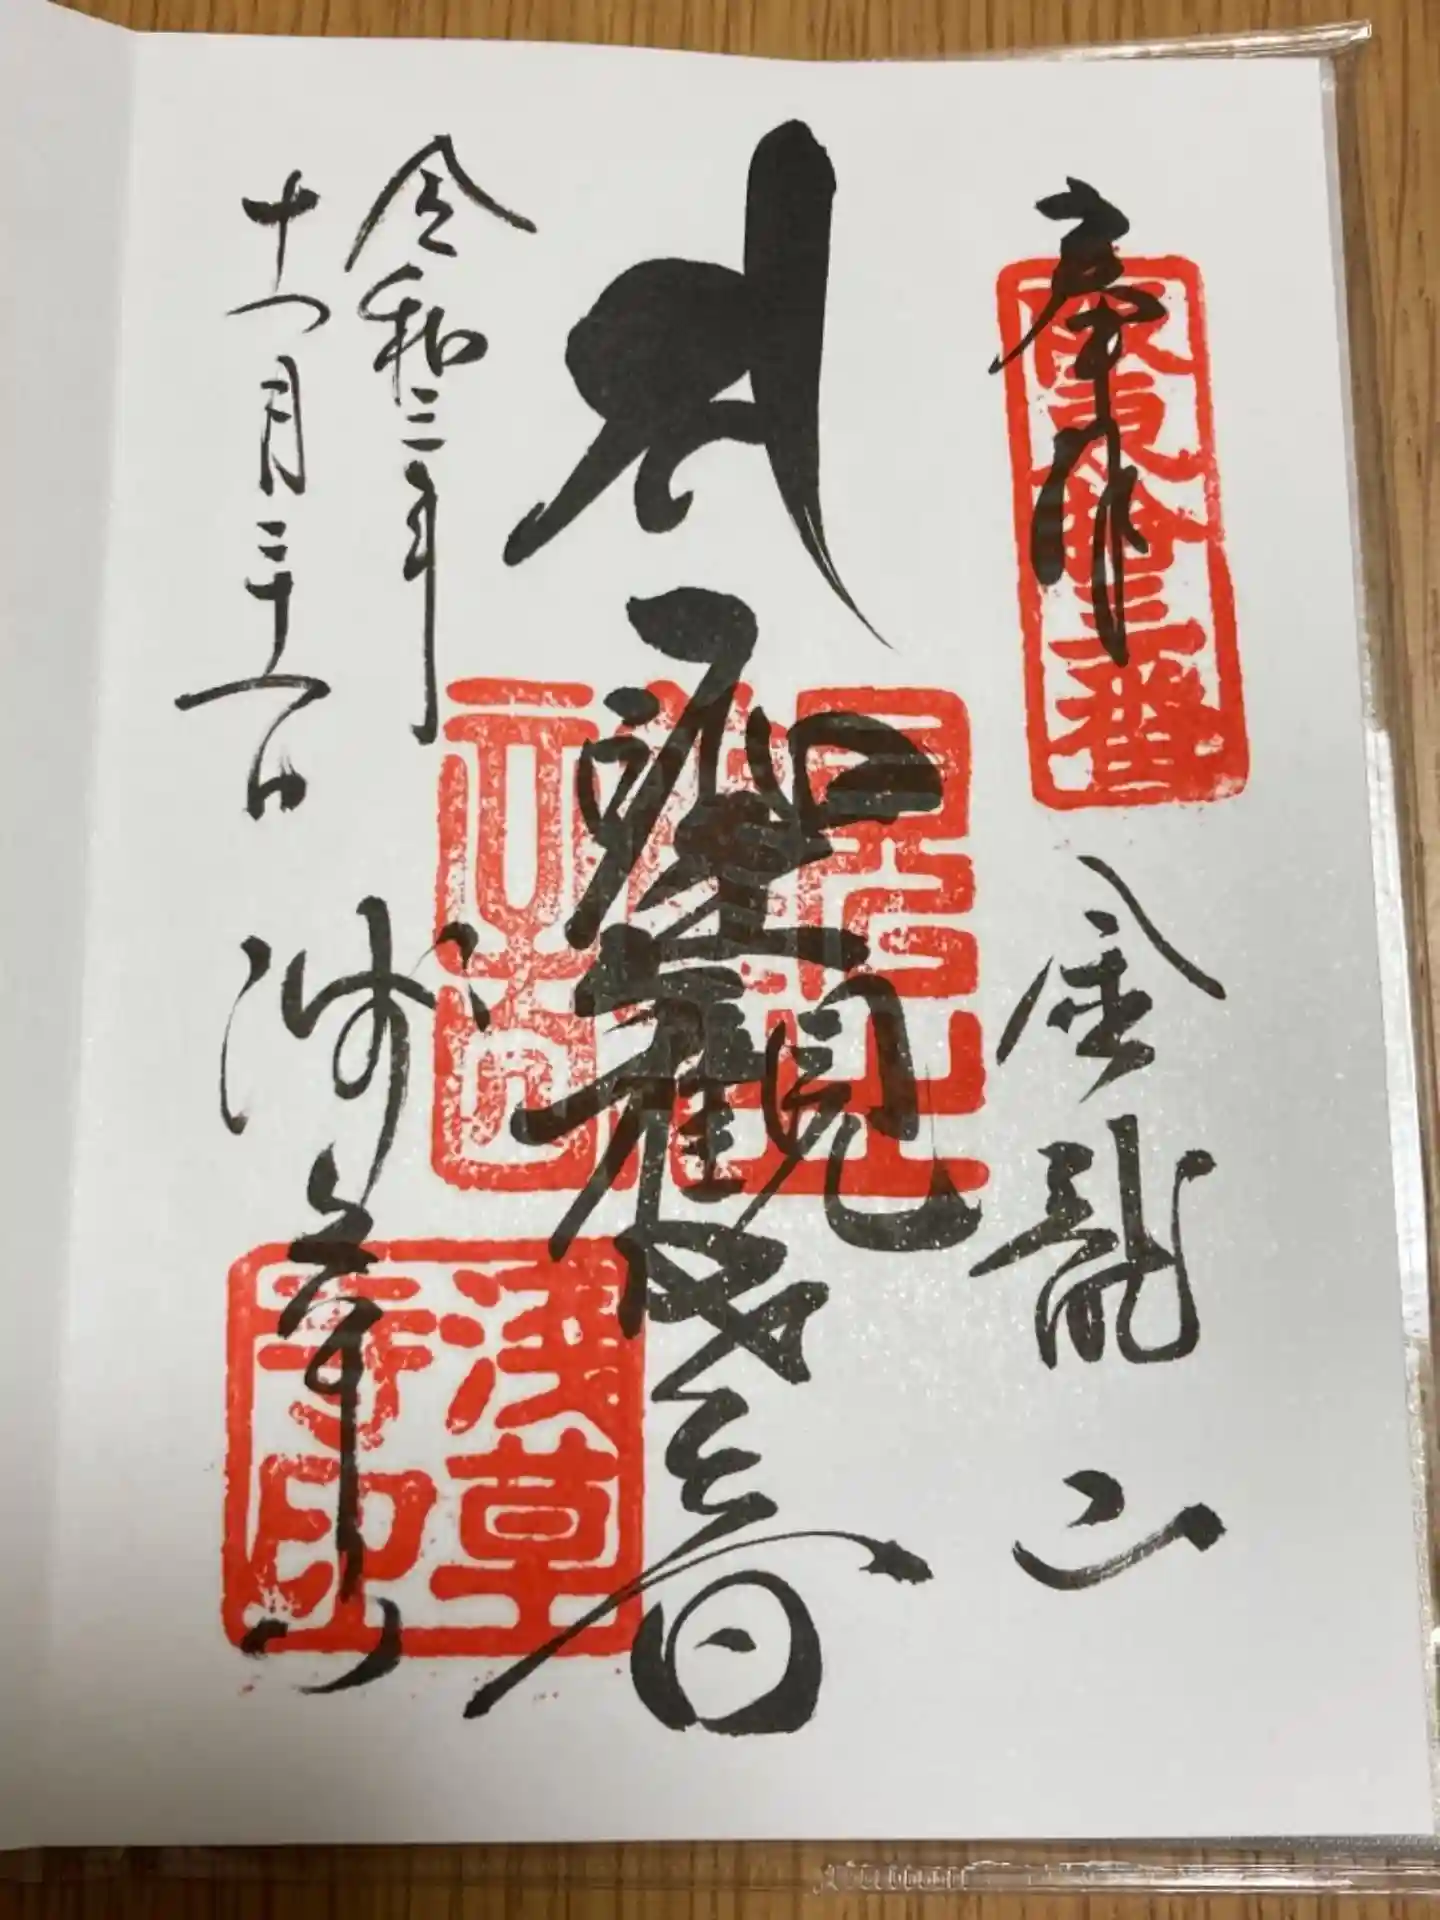 奉拝
坂東拾三番
金龍山
聖観世音
令和三年
十一月二十一日
浅草寺
浅草寺印